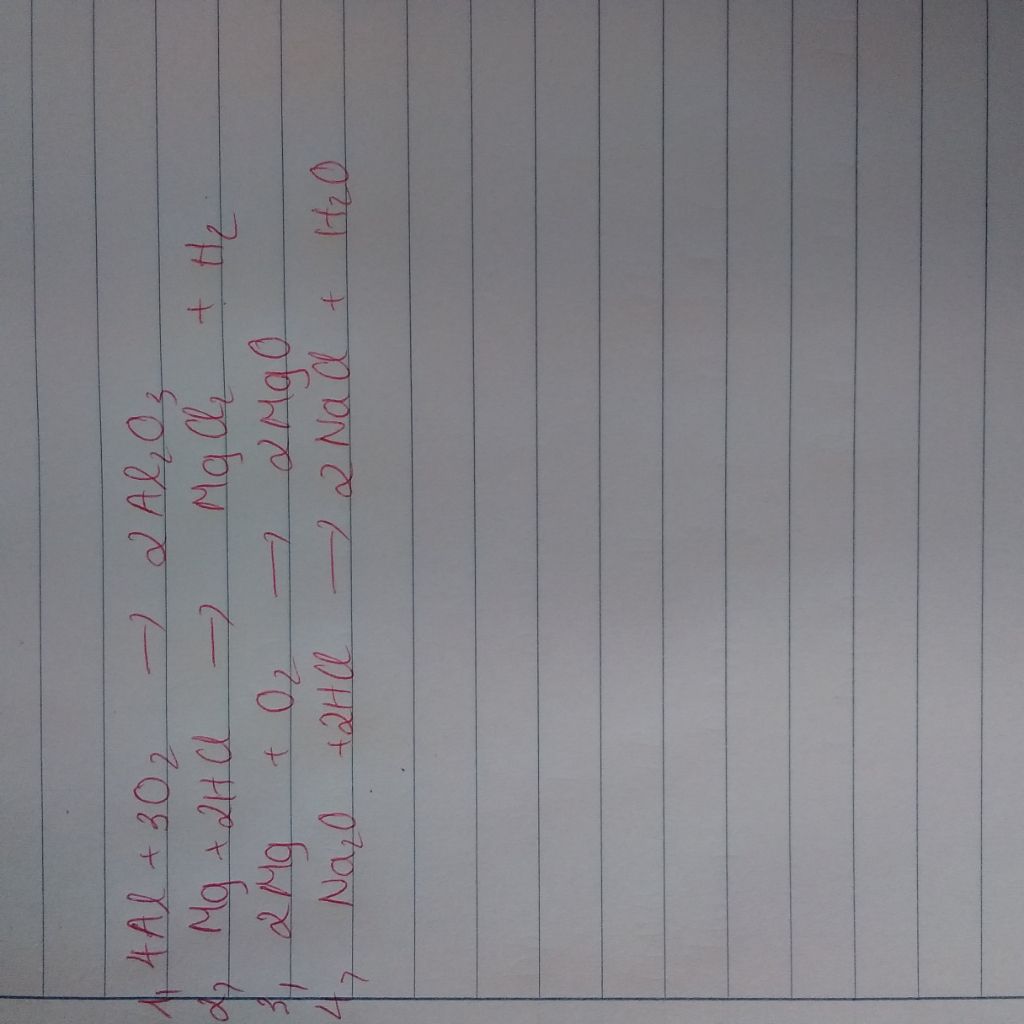 1, 4Al + 3O₂ → 2Al₂O₃
2, Mg + 2HCl → MgCl₂ + H₂
3, 2Mg + O₂ → 2MgO
4, Na₂O + 2HCl → 2NaCl + H₂O